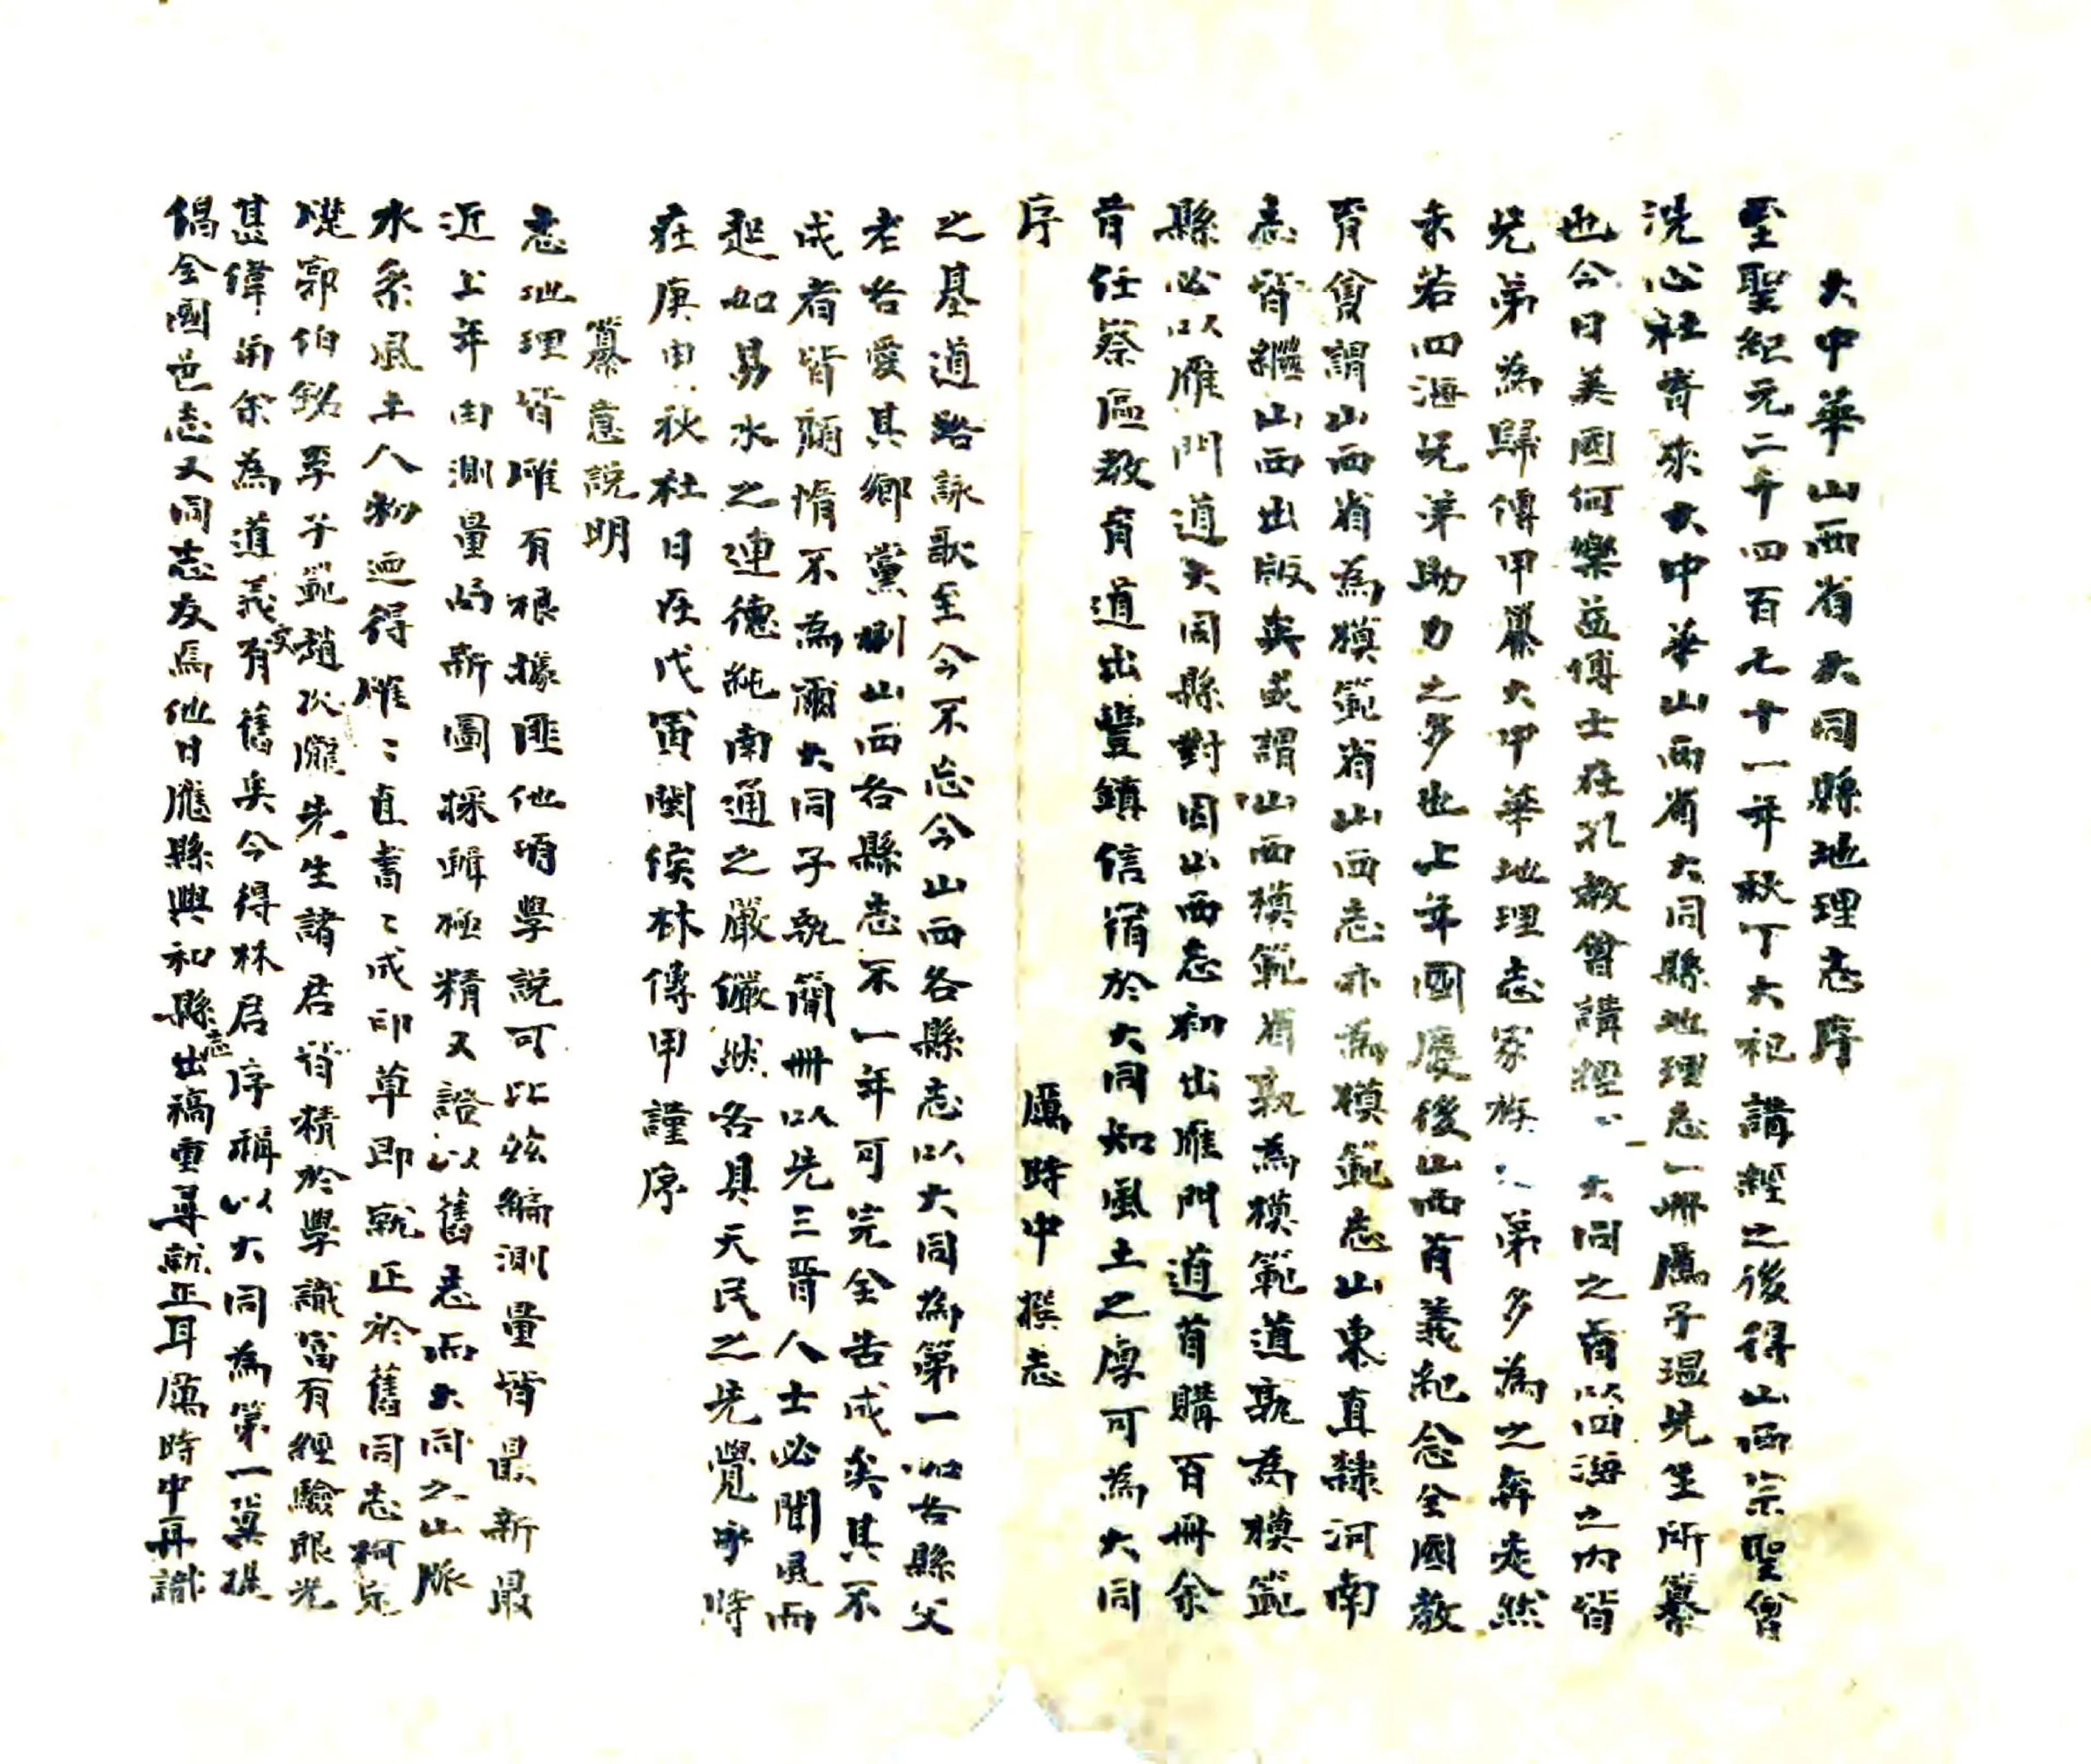 大中華山西省大同縣地理志序
至聖紀元二千四百七十一年秋丁大祀講經之後得山西宗聖會
洗心社寄來大中華山西省大同縣地理志一冊厲子温先生所纂
也今日美國何樂益博士在孔教會講經〻大同之旨以四海之内皆
兄弟為歸傳甲纂大中華地理志家族〻弟多為之奔走然
未若四海兄弟助力之多也上年國慶後山西省義紀念全國教
育會謂山西省為模範省山西志亦為模範志山東直隸河南
志皆繼山西出版矣或謂山西模範省孰為模範道孰為模範
縣必以雁門道大同縣對因山西志初出雁門道首購百冊余
昔任察區教育道出豐鎮信宿於大同知風土之厚可為大同
序
厲時中撰志
之基道路詠歌至今不忘今山西各縣志以大同為第一如各縣父
老各愛其鄉黨則山西各縣志不一年可完全告成矣其不
成者皆頑惰不為爾大同子孰簡冊以先三晋人士必聞風而
起如易水之連德純南通之嚴儼然各具天民之先覺乎時
在庚申秋社日在戊寅閩侯林傳甲謹序
纂意説明
志地理皆確有根據匪他項學説可比兹編測量皆最新最
近上年由測量局新圖採輯極精又證以舊志而大同之山脈
水系風土人物迺得確〻直書〻成印草即就正於舊同志柯定
礎郭伯銘李子範趙次隴先生諸君皆精於學識富有經驗眼光
甚偉而余為道義交有舊矣今得林君序稱以大同為第一冀提
倡全國邑志又同志友焉他日應縣興和縣志出稿重尋就正耳厲時中再識